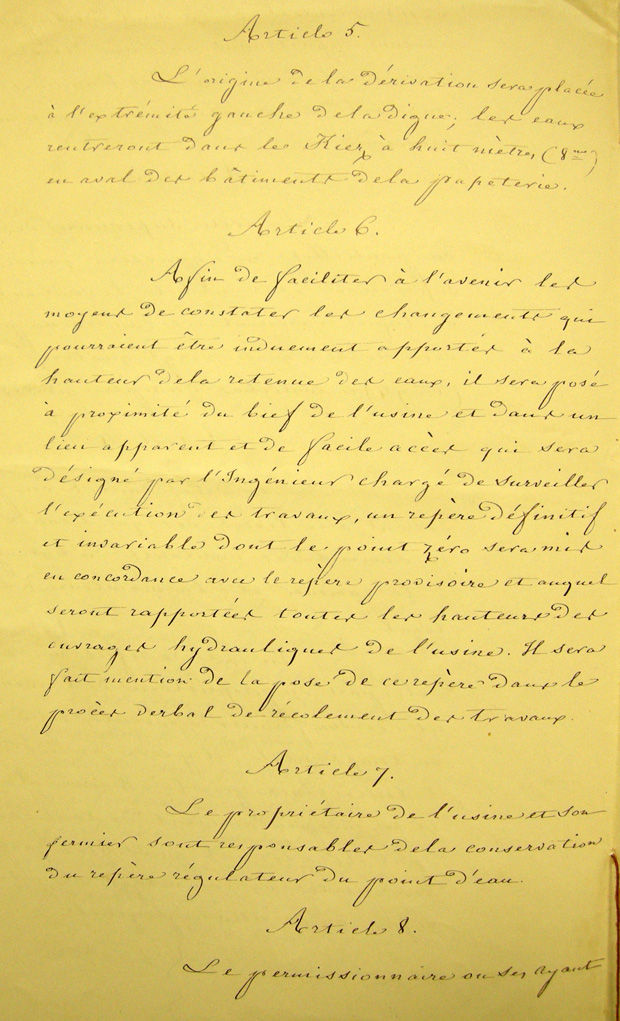 Article 5.
L'origine de la dérivation sera placée
à l'extrémité gauche dela digue; les eaux
rentreront dans le Kiez à huit mètres (8m)
en aval des bâtiments dela papeterie.
Article 6.
Afin de faciliter à l'avenir les
moyens de constater les changements qui
pourraient être induement apportés à la
hauteur dela retenue des eaux, il sera posé
à proximité du bief de l'usine et dans un
lieu apparent et de facile accès qui sera
désigné par l'Ingénieur chargé de surveiller
l'exécution des travaux, un repère définitif
et invariable dont le point zéro sera mis
en concordance avec le repère provisoire et auquel
seront rapportées toutes les hauteurs des
ouvrages hydrauliques de l'usine. Il sera
fait mention de la pose de ce repère dans le
procès verbal de récolement des travaux.
Article 7.
Le propriétaire de l'usine et son
fermier sont responsables dela conservation
du repère régulateur du point d'eau.
Article 8.
Le permissionnaire ou ses ayant